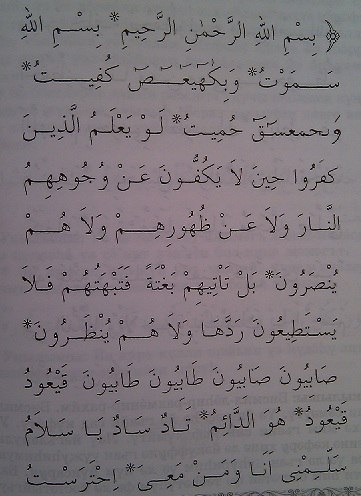 ﴿ بِسْمِ اللهِ الرَّحْمٰنِ الرَّحِيمِ* بِسْمِ اللهِ
سَمَوْتُ* وَبِكَهٰيٰعٓصٓ كُفِيتُ*
وَبحمعسق حُمِيتُ* لَوْ يَعْلَمُ الَّذِينَ
كَفَرُوا حِينَ لاَ يَكُفُّونَ عَنْ وُجُوهِهِمُ
النَّارَ وَلاَ عَنْ ظُهُورِهِمْ وَلاَ هُمْ
يُنْصَرُونَ* بَلْ تَأْتِيهِمْ بَغْتَةً فَتَبْهَتُهُمْ فَلاَ
يَسْتَطِيعُونَ رَدَّهَا وَلاَ هُمْ يُنْظَرُونَ*
صَابِيُونَ صَابِيُونَ طَابِيُونَ طَابِيُونَ قَيْعُودُ
قَيْعُودُ* هُوَ الدَّائِمُ* تَادٌ سَادٌ يَا سَلاَمُ
سَلِّمْنِى اَنَا وَمَنْ مَعِىَ* اِحْتَرَسْتُ